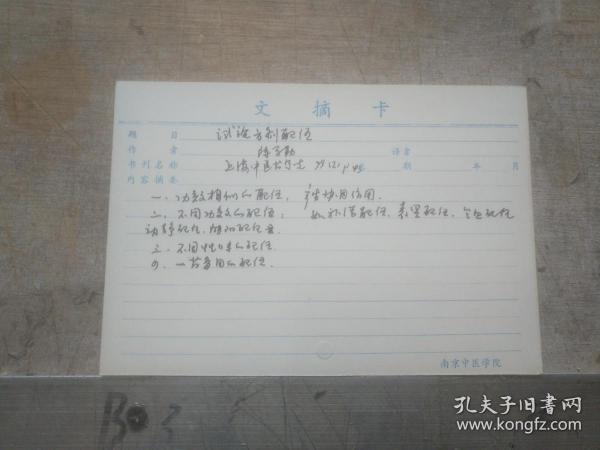 文 摘 卡
题 目 试论方剂配伍
作 者 译者
书刊名称 上海中医药杂志 期 年 月
内容摘要
一、功效相似的配伍, 协同作用.
二、不同功效的配伍; 如补泻配伍、表里配伍、
动静配伍、
三、不同性味的配伍.
四、一药多用的配伍.
南京中医学院
B 3
孔夫子旧书网
www.kongfz.com